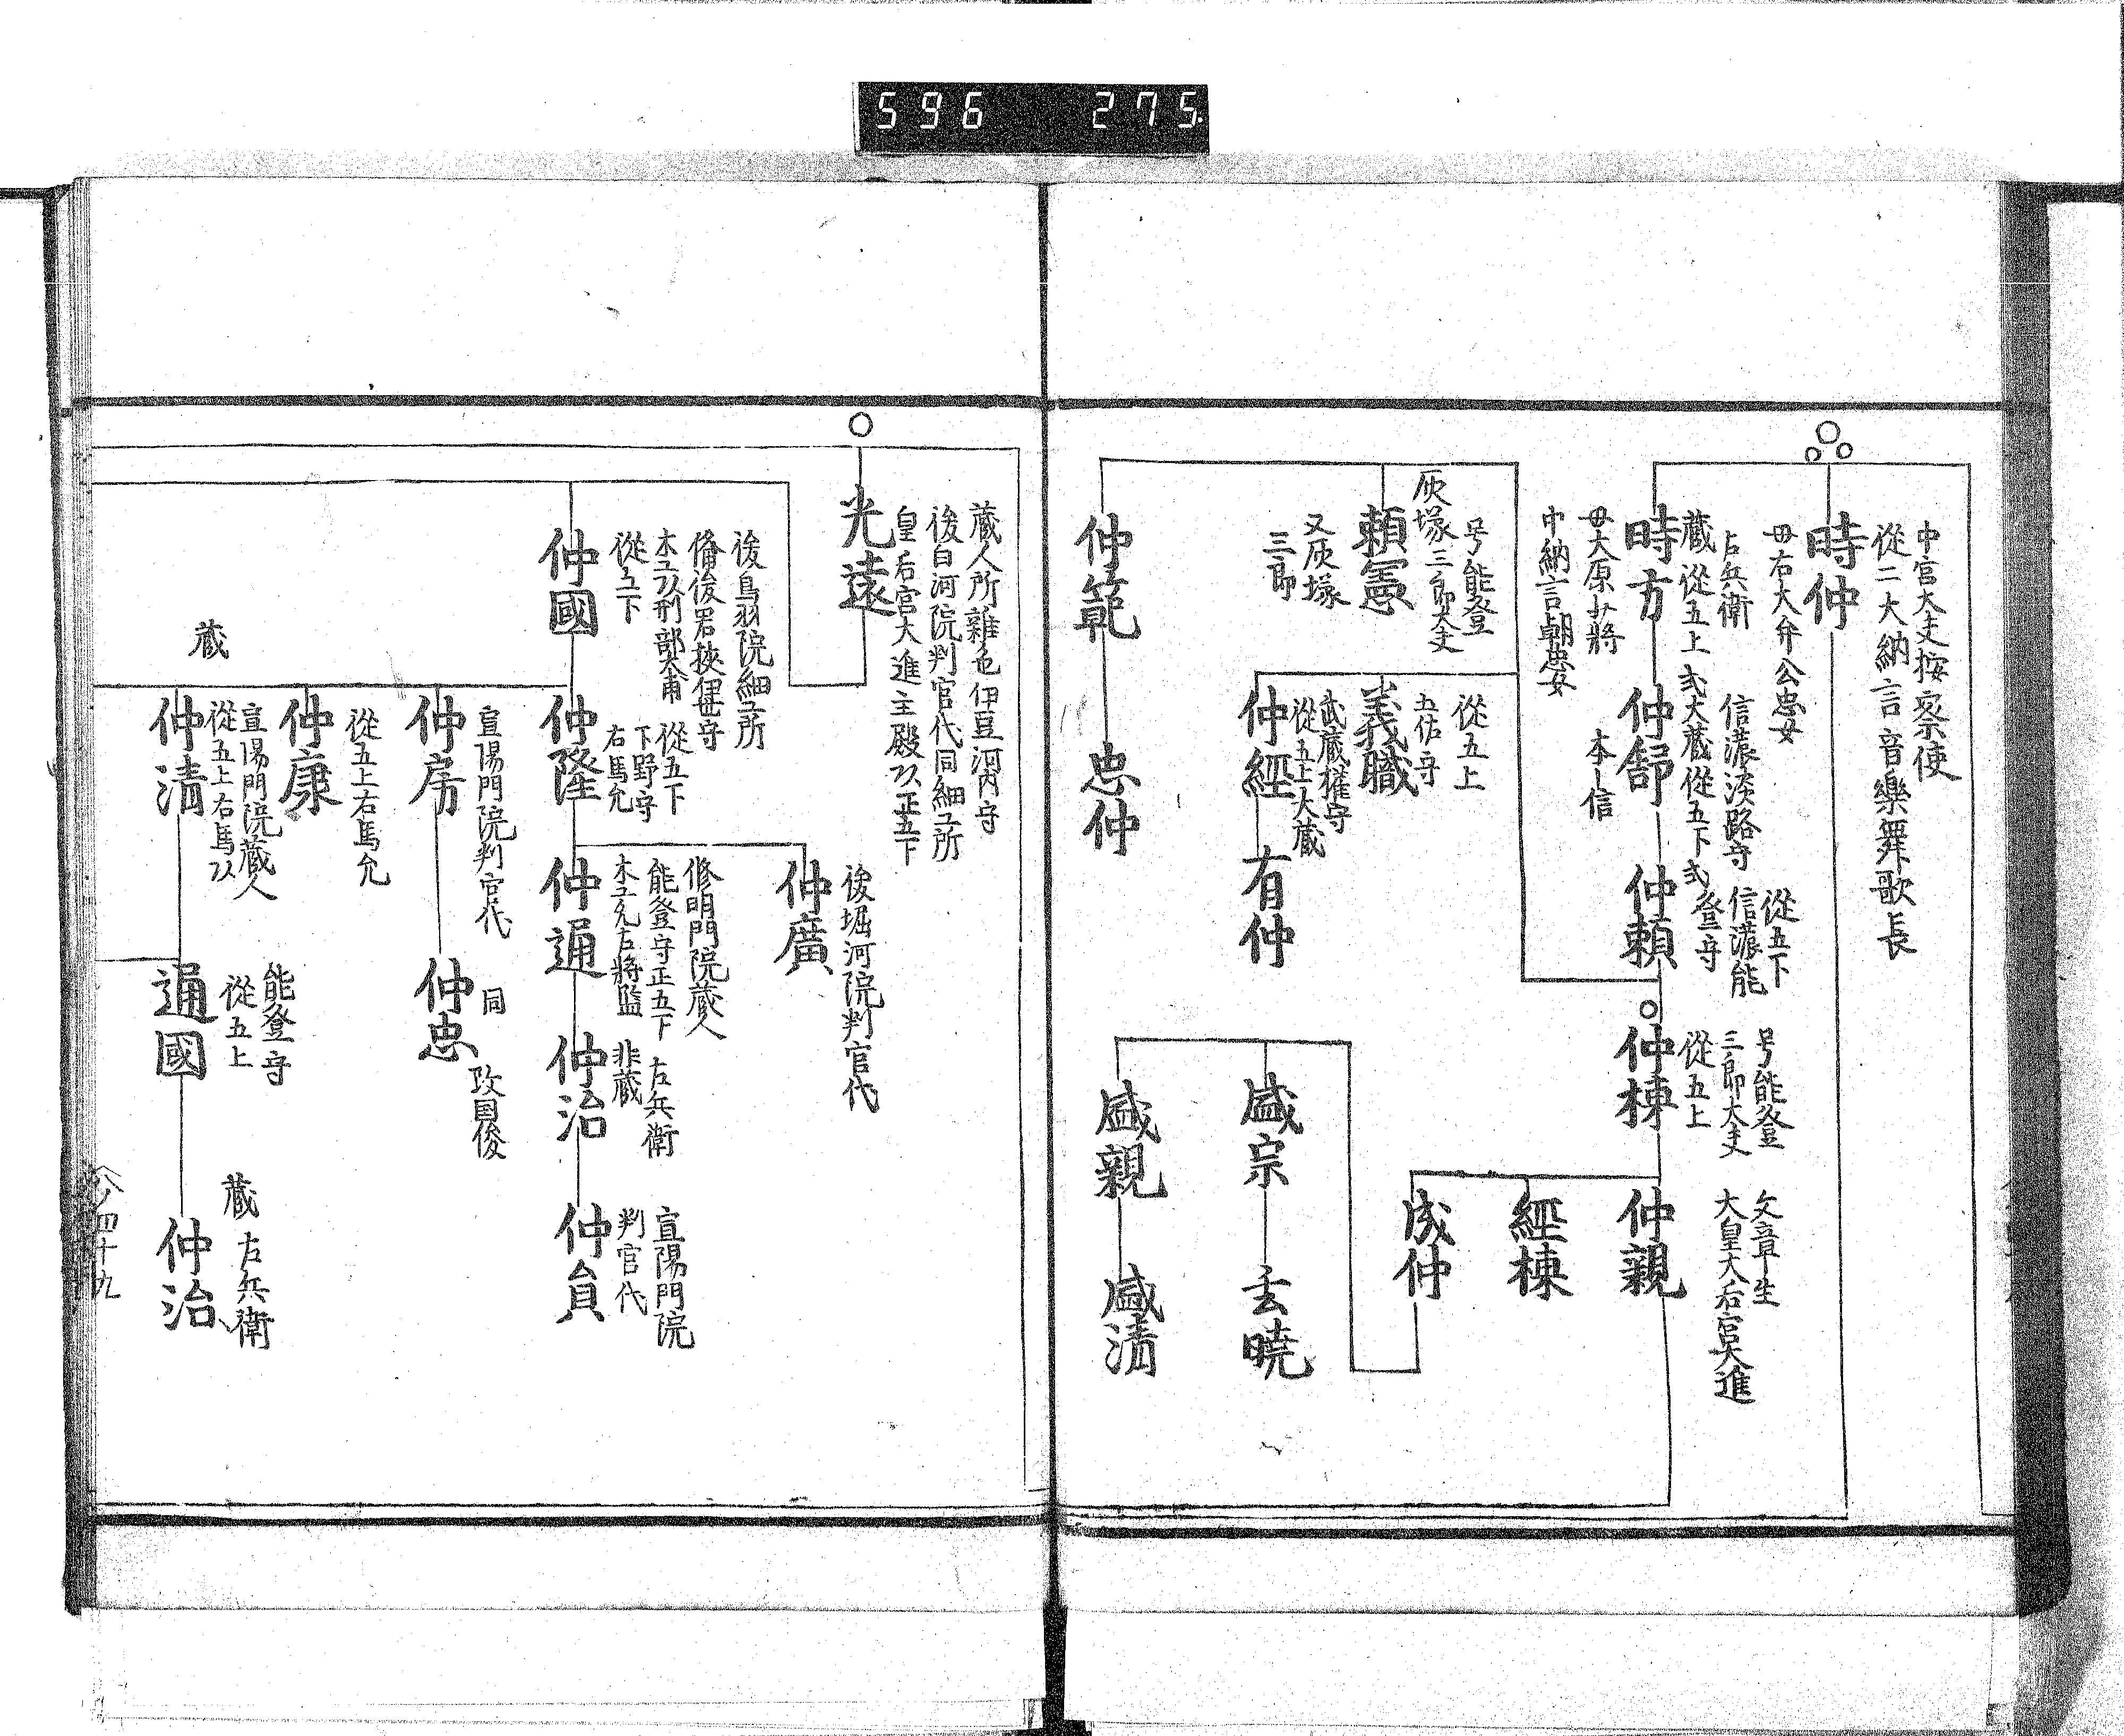 596 275
中宮大夫按察使
從二大納言音樂舞歌長
時仲
母右大弁公忠女
右兵衛
藏從五上
時方
母大原少將
中納言朝忠女
信濃淡路守
式大藏從五下
仲舒
本信
從五下
信濃能
登守
仲賴
号能登
三郎大夫
從五上
仲棟
文章生
大皇大后宮大進
仲親
經棟
成仲
盛宗
玄曉
盛親
盛清
号能登
灰塚三郎大夫
賴憲
又灰塚
三郎
從五上
五佐守
義職
武藏權守
從五上大藏
仲經
有仲
仲範
忠仲
藏人所雜色伊豆河內守
後白河院判官代同細工所
皇后宮大進主殿以正五下
光遠
後鳥羽院細工所
備後若狹伊世守
木工以刑部大甫
從五下
仲國
從五下
下野守
右馬允
仲隆
後堀河院判官代
仲廣
修明門院藏人
能登守正五下
木工允右將監
仲通
左兵衛
非藏
仲治
宣陽門院
判官代
仲員
宣陽門院判官代
仲房
同
仲忠
改国俊
從五上右馬允
仲康
藏
宣陽門院藏人
從五上右馬以
仲清
能登守
從五上
通國
藏 右兵衛
仲治
四十九